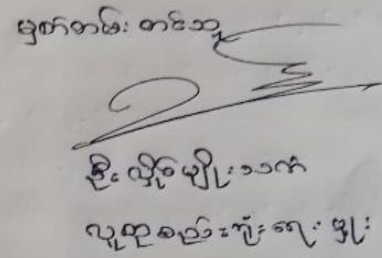 မှတ်တမ်း တင်သူ
ဦး လှိုင်မျိုးသက်
လူထု စည်းရုံး ရေး မှူး